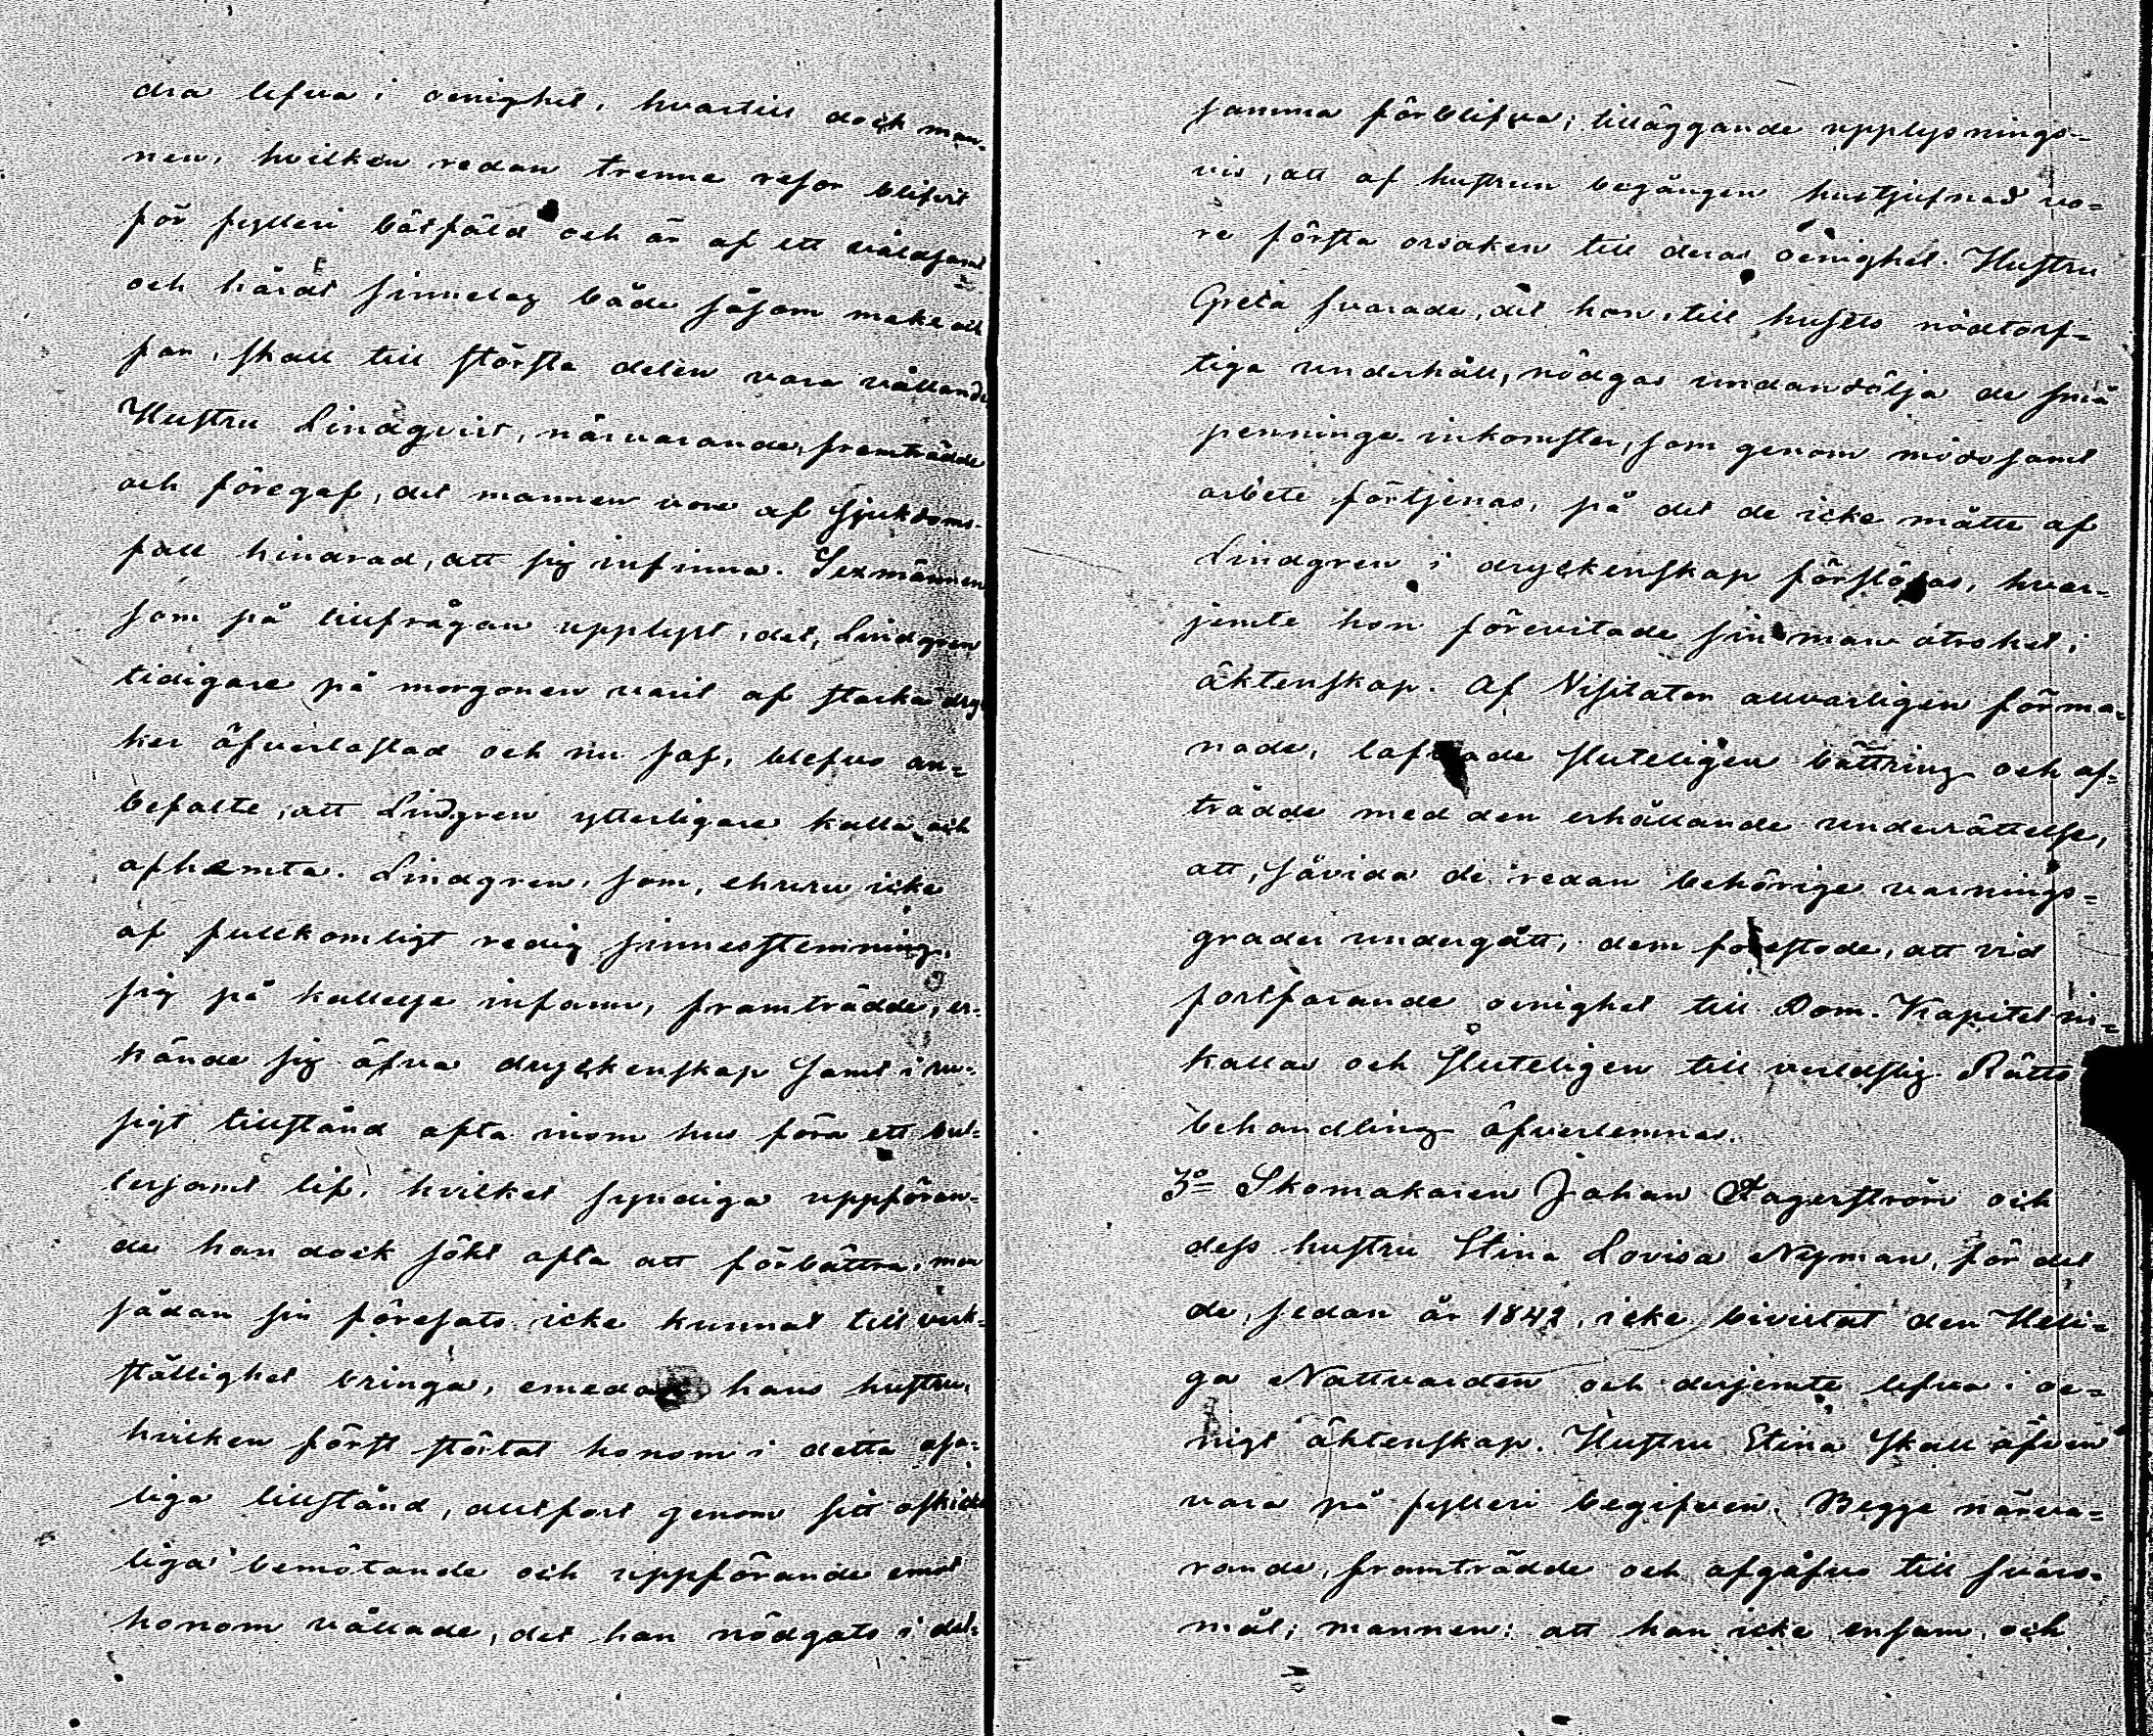 dra lefva i oenighet, hvartill dock man-
nen, hvilken redan trenne resor blifvit
för fylleri bötfäld och är af ett våldsamt
och hårdt sinnelag både såsom make och
far, skall till största delen vara vållande
Hustru Lindqvist, närvarande, framträdde
och föregaf, det mannen vore af sjukdoms-
fall hindrad, att sig infinna. Sexmännen
som på tillfrågan upplyst, det, Lindgren
tidigare på morgonen varit af starka dryc
ker öfverlastad och nu sof, blefvo an=
befalte, att Lindgren ytterligare kalla och
afhæmta. Lindgren, som, ehuru icke
af fullkomligt redig sinnesstemning,
sig på kallelse infann, framträdde, er-
kände sig öfva dryckenskap samt i ru-
sigt tillstånd ofta inom hus föra ett bul-
lersamt lif, hvilket syndiga uppföran-
de han dock sökt ofta att förbättra, men
sådan sin föresats icke kunnat till verk-
ställighet bringa, emedan hans hustru,
hvilken först störtat honom i detta osa-
liga tillstånd, alltfort genom sitt oskick
liga bemötande och uppförande emot
honom vållade, det han nödgats i det-
samma förblifva; tilläggande upplysnings=
vis, att af hustrun begången hustjufnad vo=
re första orsaken till deras oenighet. Hustru
Greta svarade, det hon, till husets nödtorf=
tiga underhåll, nödgas undandölja de små
penninge inkomster, som genom mödosamt
arbete förtjenas, på det de icke måtte af
Lindgren i dryckenskap förslösas, hvar-
jemte hon förevitade sin man otrohet i
äktenskap. Af Visitator allvarligen förma-
nade, lofvade sluteligen bättring och af=
trädde med den erhållande underrättelse,
att, såvida de redan behörige varnings=
grader undergått, dem förestode, att vid
fortfarande oenighet till Dom-Kapitel in=
kallas och sluteligen till verldslig Rätts
behandling öfverlemnas.
3o= Skomakaren Johan Hagerström och
dess hustru Stina Lovisa Nyman, för det
de, sedan år 1842, icke bivistat den Heli=
ga Nattvarden och derjemte lefva i oe=
nigt äktenskap. Hustru Stina skall äfven
vara på fylleri begifven. Begge närva=
rande, framträdde och afgåfvo till svaro-
mål; mannen: att han icke ensam och